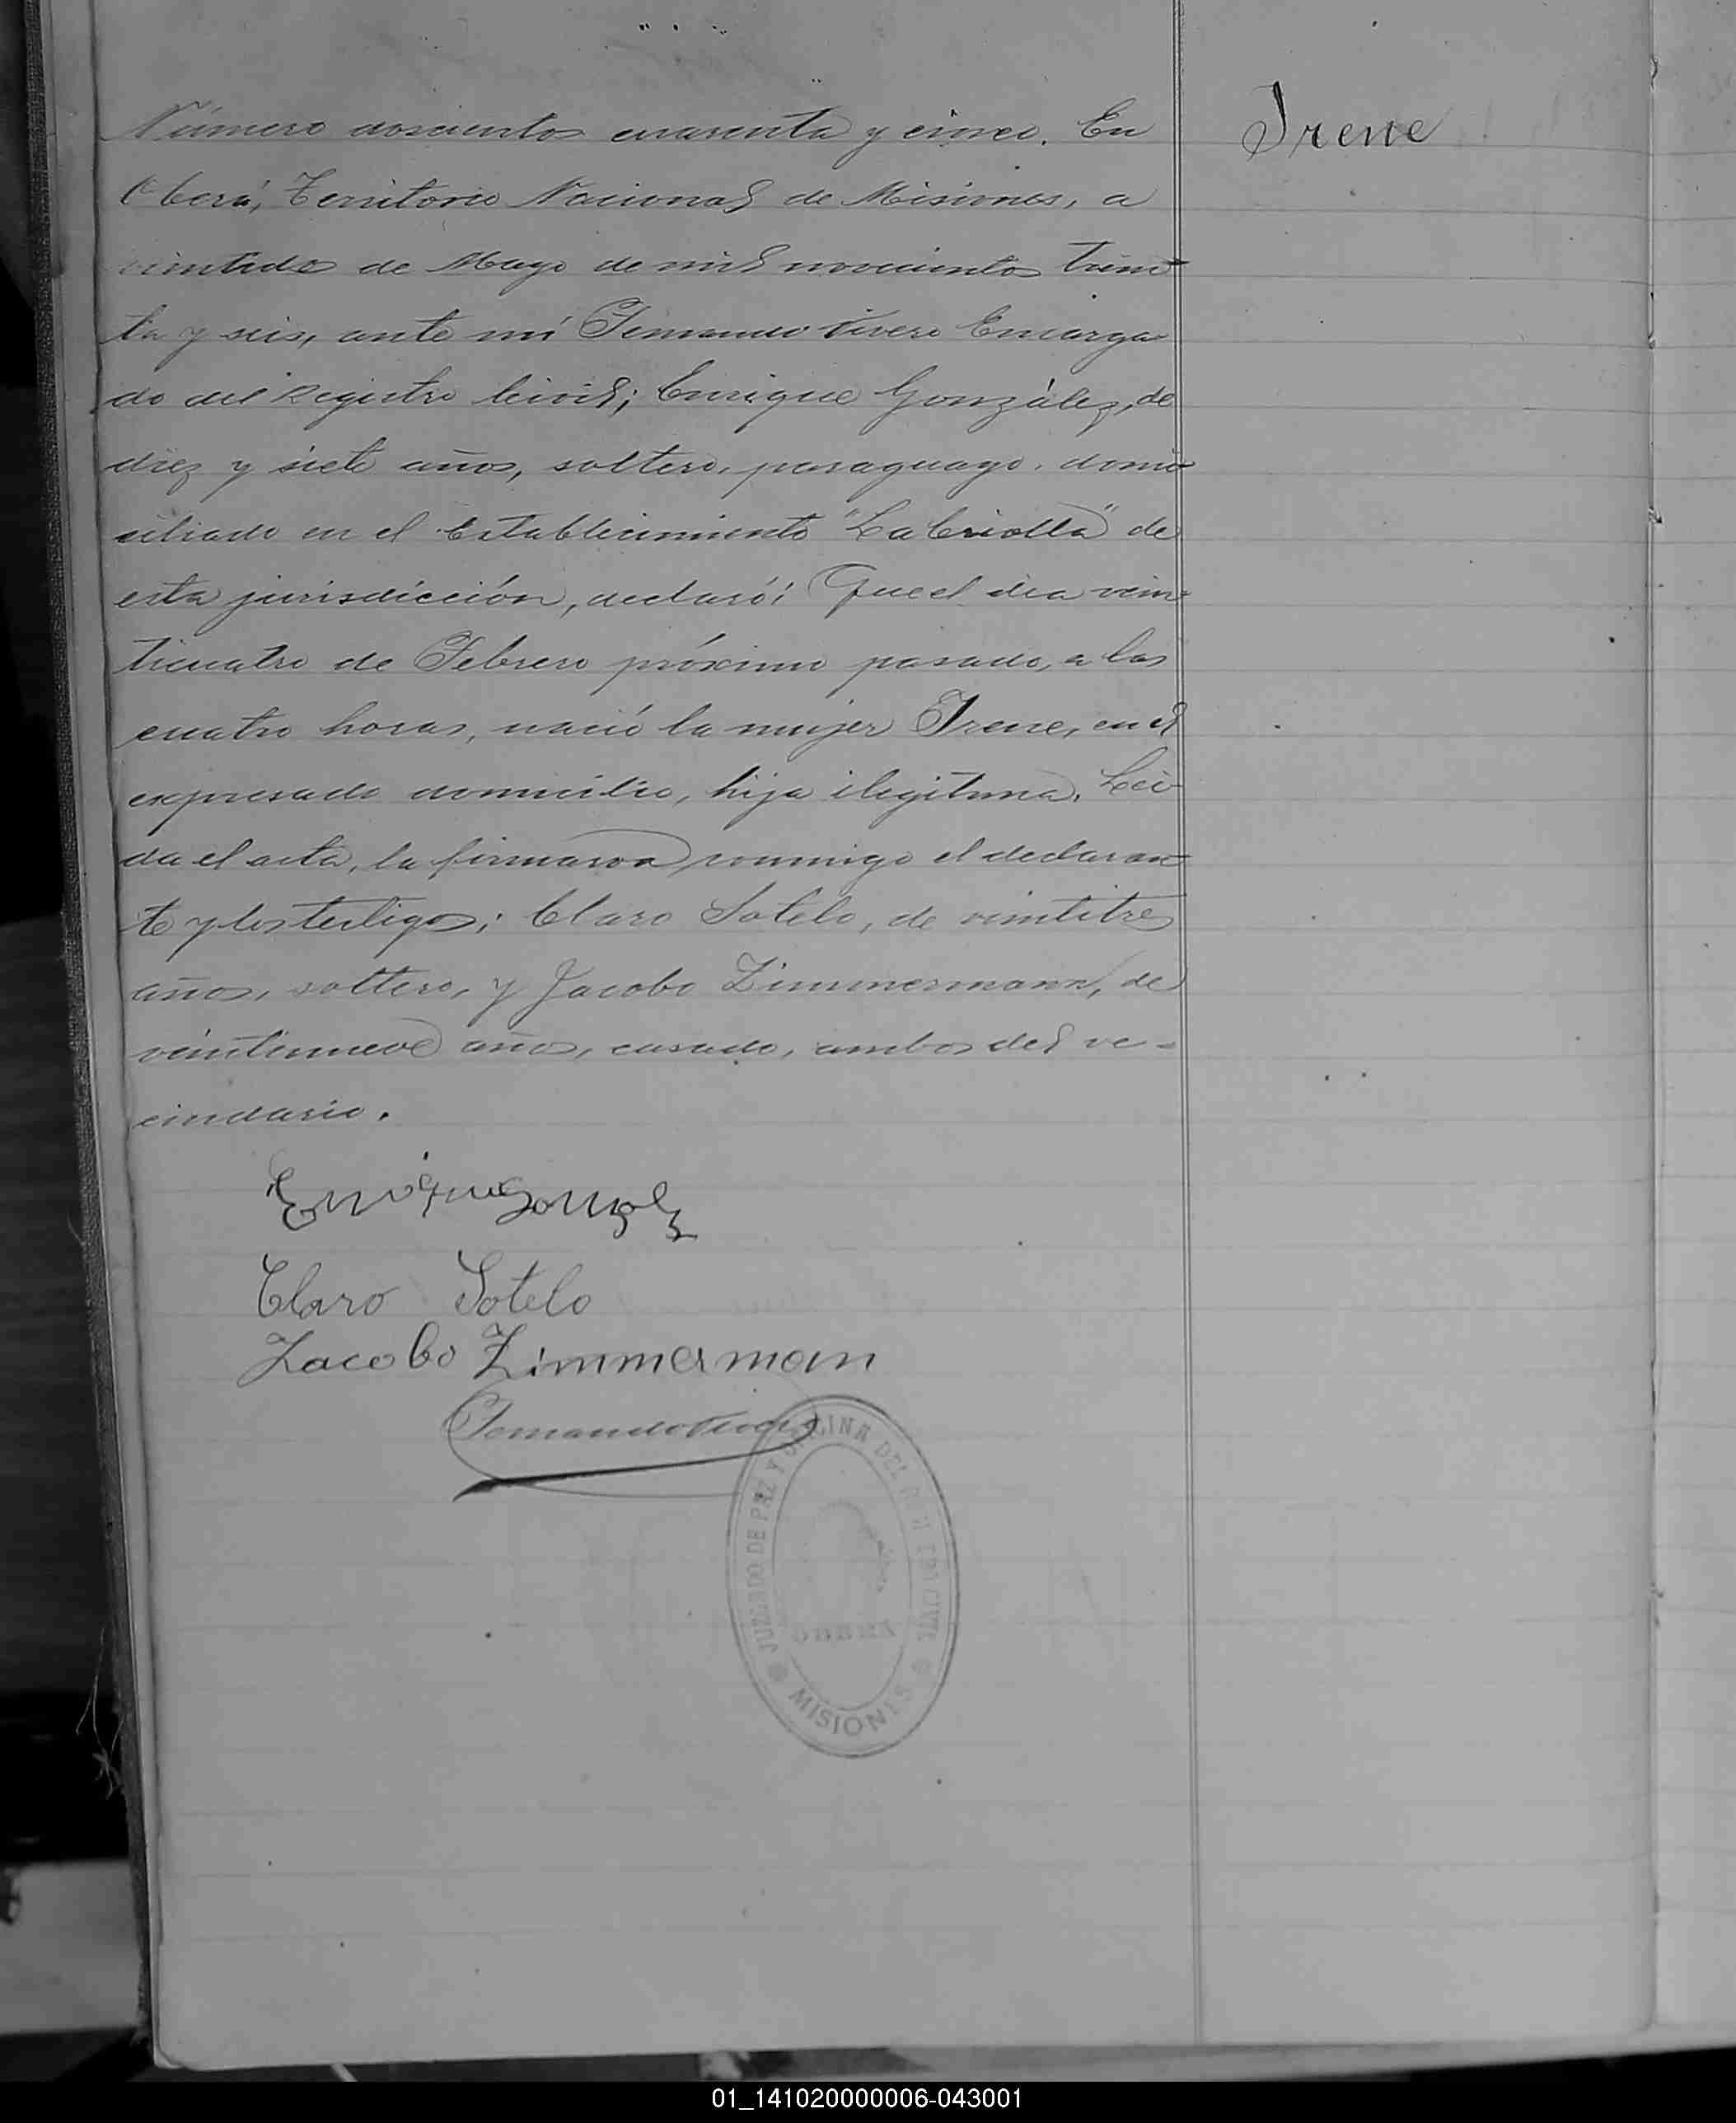 Número doscientos cuarenta y cinco. En
Oberá, Territorio Nacional de Misiones, a
veintidos de Mayo de mil novecientos trein-
ta y seis, ante mí Fernando Vivero Encarga-
do del Registro Civil; Enrique González, de
diez y siete años, soltero, paraguayo, domi-
ciliado en el Establecimiento "La Criolla" de
esta jurisdicción, declaró: Que el dia vein-
ticuatro de Febrero próximo pasado, a las
cuatro horas, nació la mujer Irene, en el
expresado domicilio, hija ilegitima. Leí-
da el acta, la firmaron conmigo el declaran-
te y los testigos; Claro Sotelo, de veintitres
años, soltero, y Jacobo Zimmermann, de
veintinueve años, casado, ambos del ve-
cindario.
Irene
Enrique Gonzalz
Claro Sotelo
Jacobo Zimmerman
Fernando Vivero
JUZGADO DE PAZ Y OFICINA DEL REGISTRO CIVIL
OBERÁ
MISIONES
01_141020000006-043001